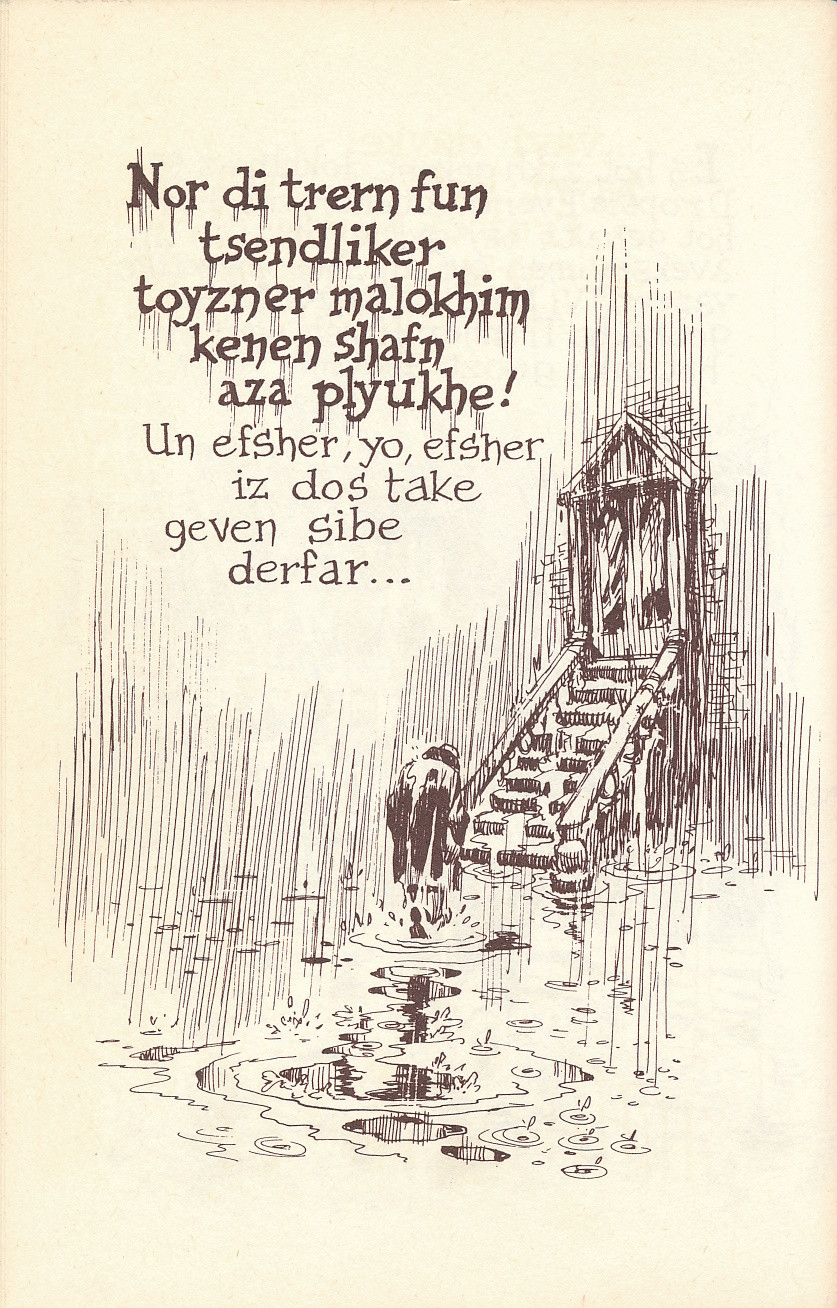 Nor di trern fun
tsendliker
toyzner malokhim
kenen shafn
aza plyukhe!
Un efsher, yo, efsher
iz dos take
geven sibe
derfar...